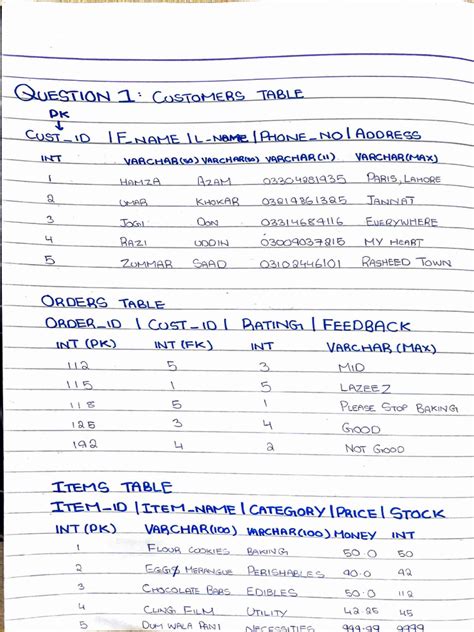 QUESTION 1: CUSTOMERS TABLE
PK
CUST_ID | F_NAME | L-NAME | PHONE_NO | ADDRESS
INT VARCHAR(50) VARCHAR(50) VARCHAR(11) VARCHAR(MAX)
1 HAMZA AZAM 03304281935 PARIS, LAHORE
2 UMAR KHOKAR 03219861325 JANNAT
3 JOGI DON 03314689116 EVERYWHERE
4 RAZI UDDIN 03009037815 MY HEART
5 ZUMMAR SAAD 03102446101 RASHEED TOWN
ORDERS TABLE
ORDER_ID | CUST_ID | RATING | FEEDBACK
INT (PK) INT (FK) INT VARCHAR (MAX)
112 5 3 MID
115 1 5 LAZEEZ
118 5 1 PLEASE STOP BAKING
125 3 4 GOOD
192 4 2 NOT GOOD
ITEMS TABLE
ITEM_ID | ITEM_NAME | CATEGORY | PRICE | STOCK
INT (PK) VARCHAR(100) VARCHAR(100) MONEY INT
1 FLOUR COOKIES BAKING 50.0 50
2 EGGS MERANGUE PERISHABLES 90.0 42
3 CHOCOLATE BARS EDIBLES 50.0 112
4 CLING FILM UTILITY 42.25 96
5 DUM WALA PANI NECESSITIES 999.99 9999